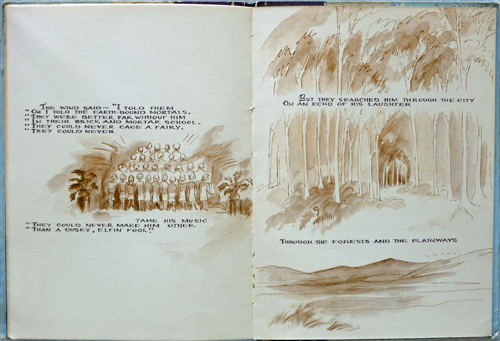 The wind said – "I told them
Oh I told the earth-bound mortals,
They were better far without him
In their brick and mortar school.
They could never cage a fairy,
They could never
tame his music
"They could never make him other
Than a dusky, elfin fool!"
But they searched him through the city
On an echo of his laughter
Through the forests and the plainways